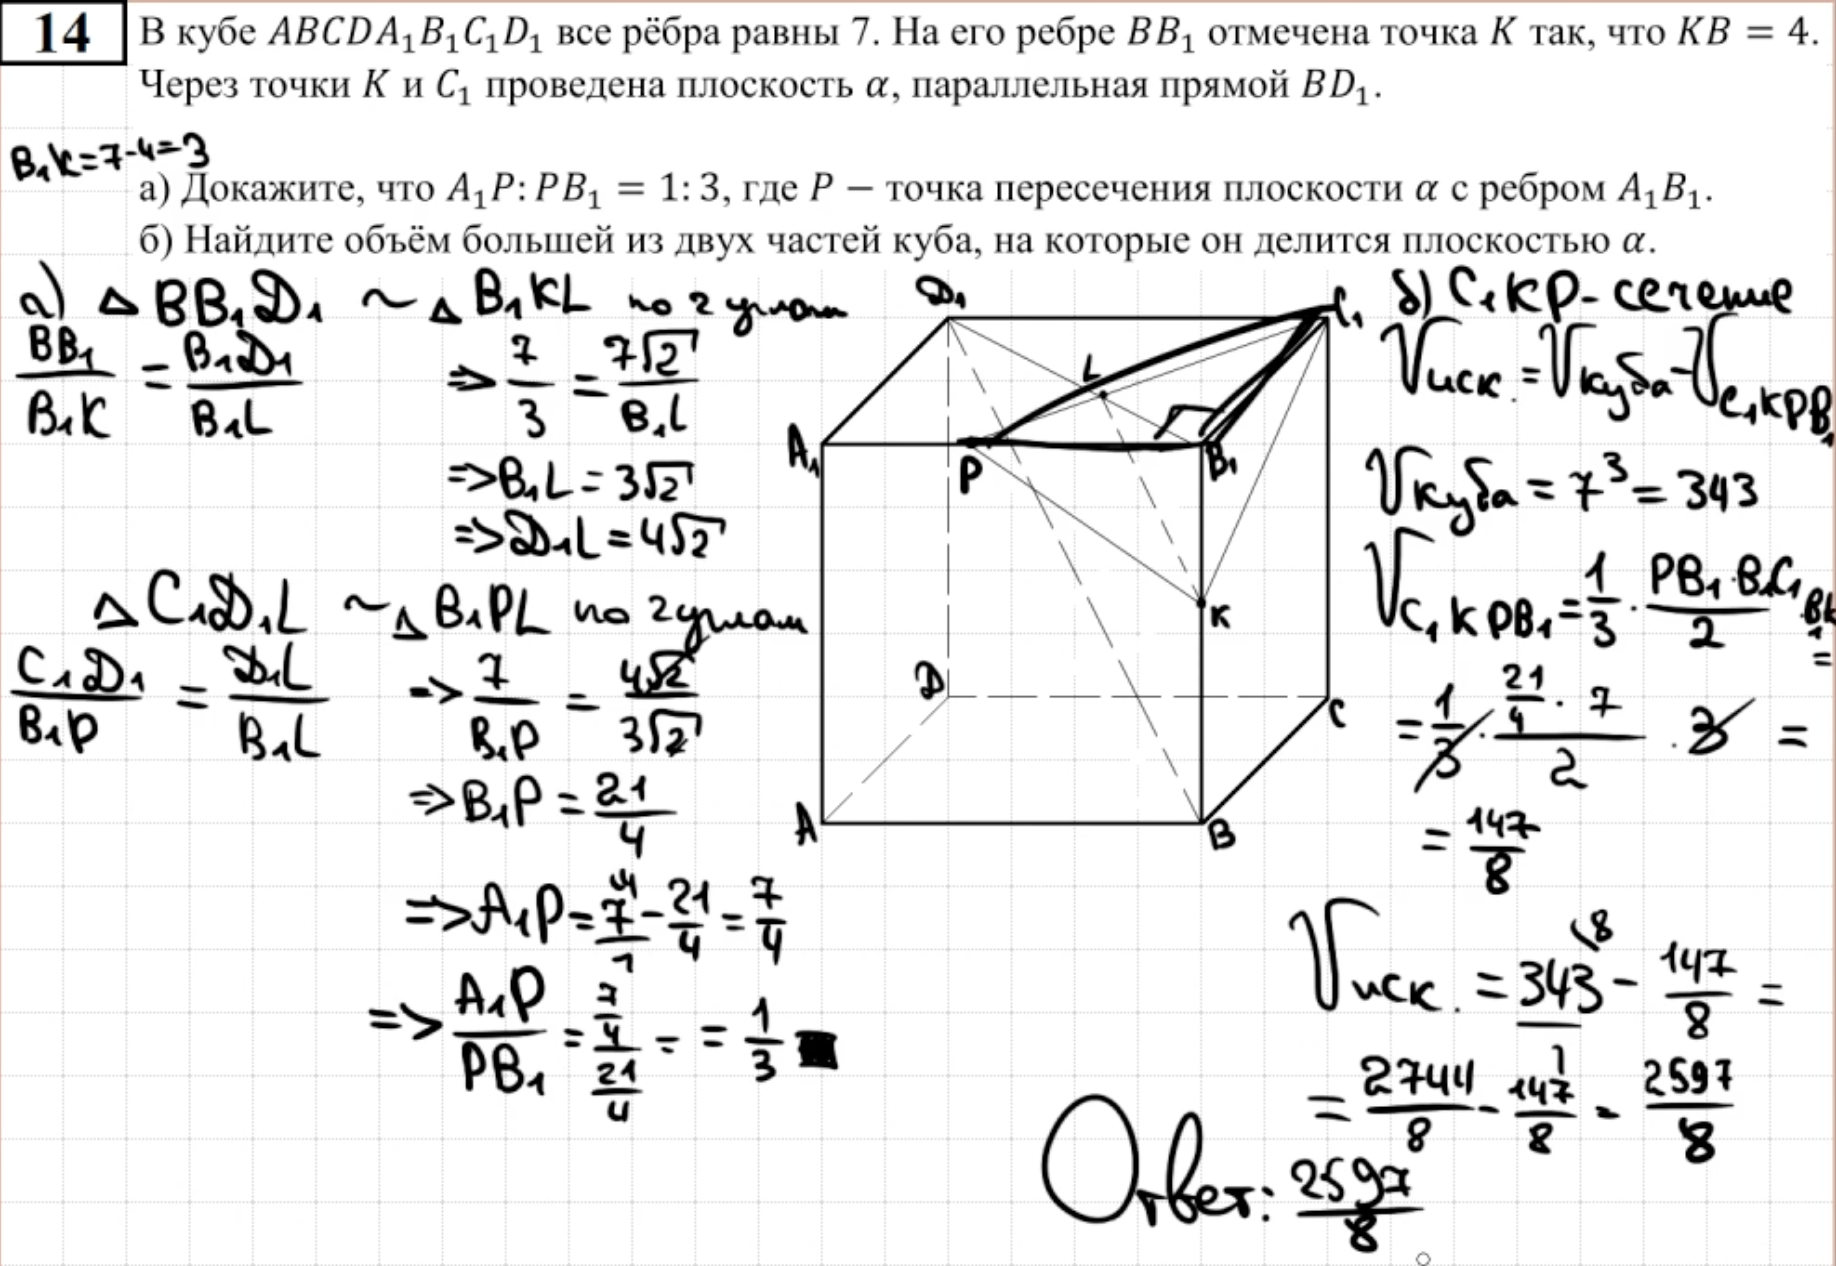 14
В кубе ABCDA₁B₁C₁D₁ все рёбра равны 7. На его ребре BB₁ отмечена точка K так, что KB = 4.
Через точки K и C₁ проведена плоскость α, параллельная прямой BD₁.
B₁K=7-4=3
а) Докажите, что A₁P: PB₁ = 1: 3, где P – точка пересечения плоскости α с ребром A₁B₁.
б) Найдите объём большей из двух частей куба, на которые он делится плоскостью α.
а) Δ BB₁D₁ ~ Δ B₁KL по 2 углам
BB₁/B₁K = B₁D₁/B₁L => 7/3 = 7√2/B₁L
=> B₁L = 3√2
=> D₁L = 4√2
Δ C₁D₁L ~ Δ B₁PL по 2 углам
C₁D₁/B₁P = D₁L/B₁L => 7/B₁P = 4√2/3√2
=> B₁P = 21/4
=> A₁P = 7/1 4 - 21/4 = 7/4
=> A₁P/PB₁ = 7/4 / 21/4 = = 1/3
D₁ C₁
L
A₁ P B₁
K
D C
A B
б) C₁KP - сечение
Vиск. = Vкуба - VC₁KPB₁
Vкуба = 7³ = 343
VC₁KPB₁ = 1/3 · PB₁·B₁C₁/2 · B₁K =
= 1/3 · 21/4 · 7/2 · 3 =
= 147/8
Vиск. = 343 8 - 147/8 =
= 2744/8 - 147/8 = 2597/8
Ответ: 2597/8